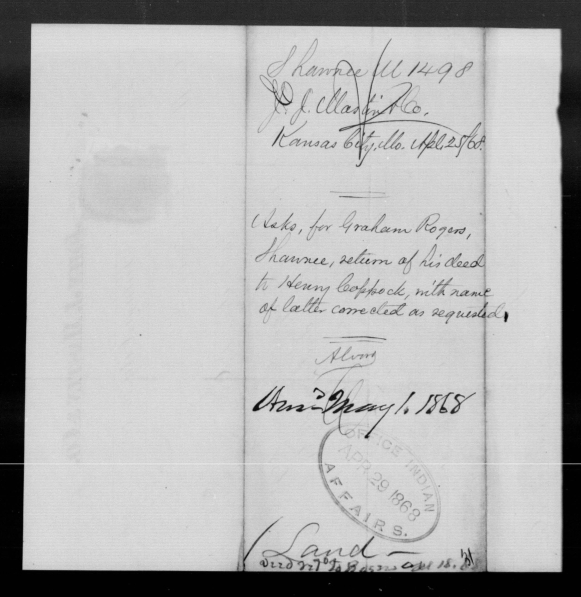 Shawnee M 1498
J. Martin & Co.
Kansas City, Mo. Apl. 25/68.
Asks, for Graham Rogers,
Shawnee, return of his deed
to Henry Coppock, with name
of latter corrected as requested.
Ansd May 1. 1868
OFFICE INDIAN
APR 29 1868
AFFAIRS.
Land
to Rogers Apl 18.